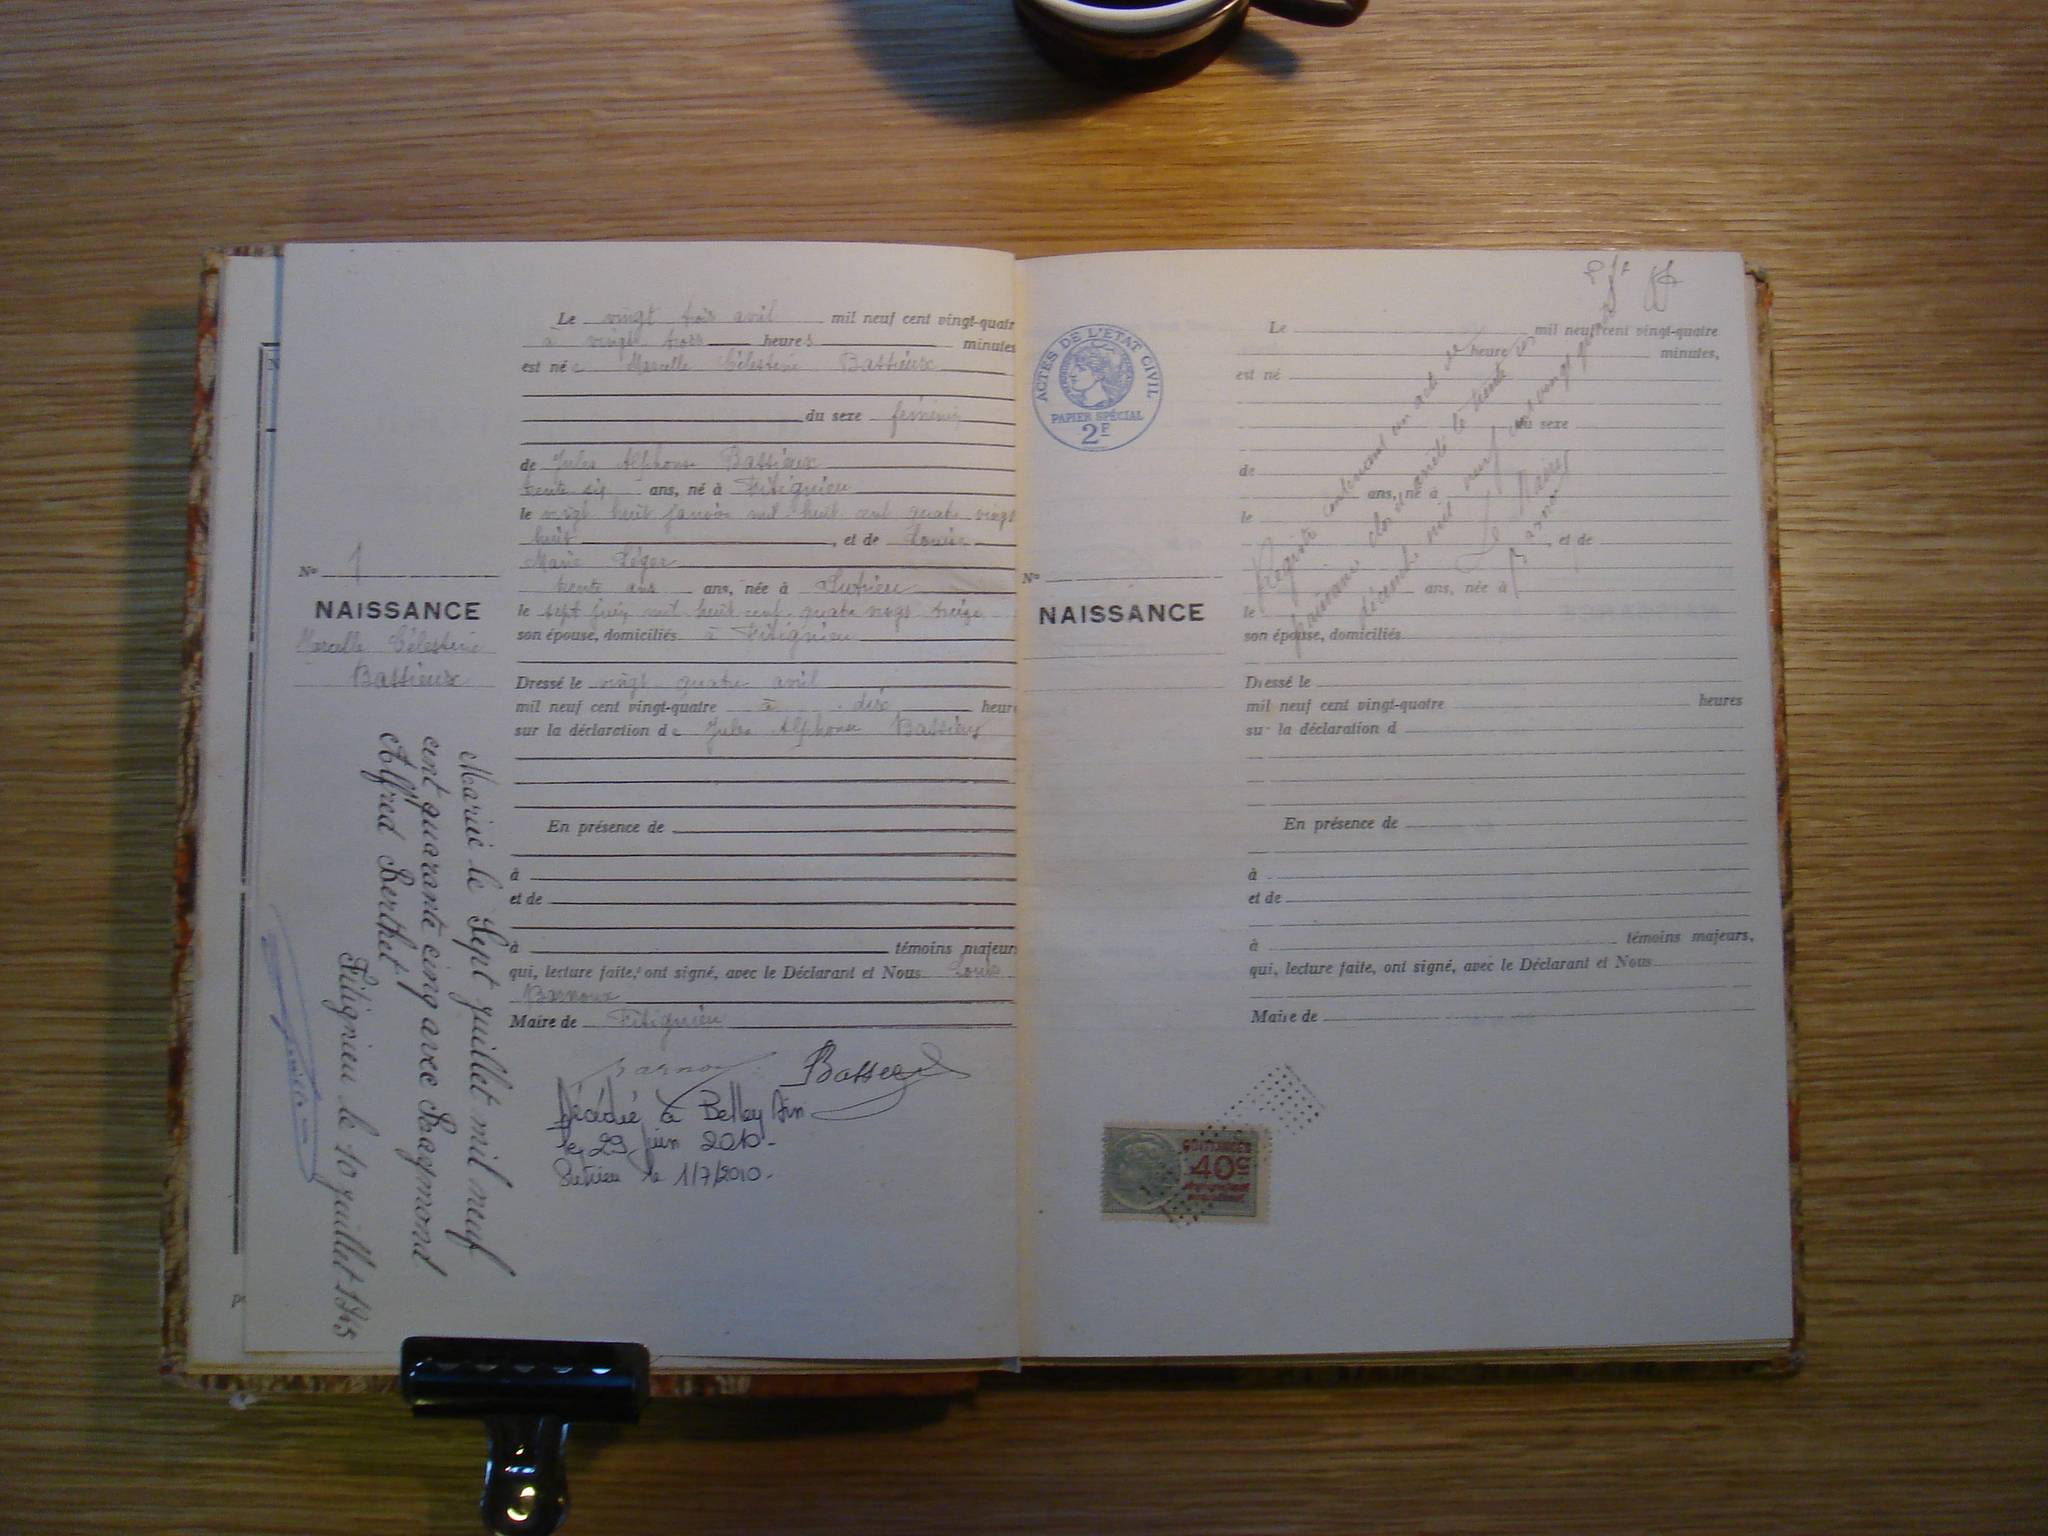 Le vingt trois avril mil neuf cent vingt-quatre
à vingt trois heures minutes
est née Marcelle Célestine Bassieux
du sexe féminin
de Jules Alphonse Bassieux
trente six ans, né à Fitignieu
le vingt huit janvier mil huit cent quatre vingt
huit, et de Louise
Marie Léger
trente ans ans, née à Sutrieu
le sept juin mil huit cent quatre vingt treize
son épouse, domiciliés à Fitignieu
Dressé le vingt quatre avril
mil neuf cent vingt-quatre à dix heure
sur la déclaration de Jules Alphonse Bassieux
En présence de
à
et de
à témoins majeurs
qui, lecture faite, ont signé, avec le Déclarant et Nous Louis
Barnoux
Maire de Fitignieu
Barnoux Bassieux
Décédée à Belley Ain
le 29 juin 2010-
Sutrieu le 1/7/2010-
No 1
NAISSANCE
Marcelle Célestine
Bassieux
Mariée le Sept juillet mil neuf
cent quarante cinq avec Raymond
Alfred Berthet
Fitignieu le 10 juillet 1945
ACTES DE L'ETAT CIVIL
PAPIER SPÉCIAL
2F
No
NAISSANCE
Le mil neuf cent vingt-quatre
heure minutes,
est né
du sexe
de
ans, né à
le
, et de
ans, née à
le
son épouse, domiciliés
Dressé le
mil neuf cent vingt-quatre heures
sur la déclaration d
En présence de
à
et de
à témoins majeurs,
qui, lecture faite, ont signé, avec le Déclarant et Nous
Maire de
Registre contenant un acte de
naissance clos et arrêté le trente un
décembre mil neuf cent vingt quatre
Le Maire
Barnoux
QUITTANCES
40c